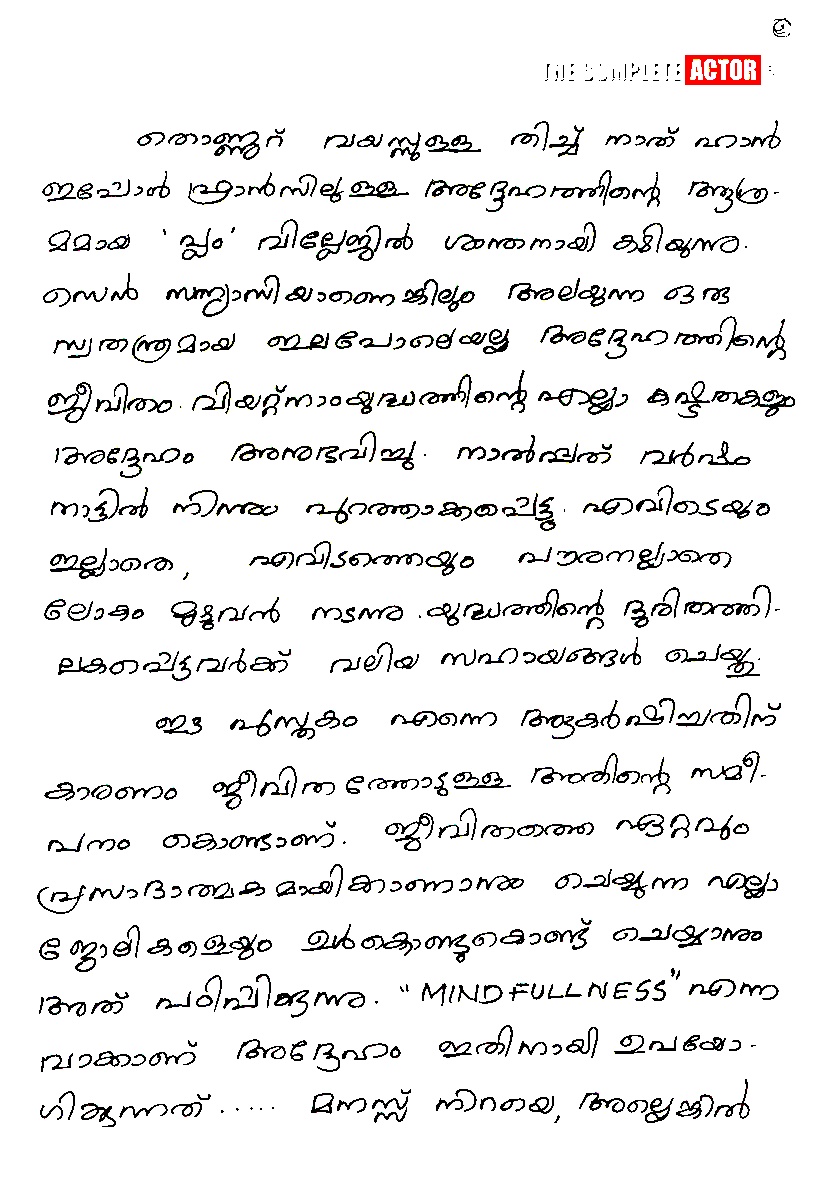 ②
THE COMPLETE ACTOR
തൊണ്ണൂറ് വയസ്സുള്ള തിച്ച് നാത് ഹാൻ
ഇപ്പോൾ ഫ്രാൻസിലുള്ള അദ്ദേഹത്തിന്റെ ആശ്ര-
മമായ 'പ്ലം' വില്ലേജിൽ ശാന്തനായി കഴിയുന്നു.
സെൻ സന്ന്യാസിയാണെങ്കിലും അലയുന്ന ഒരു
സ്വതന്ത്രമായ ഇലപോലെയല്ല അദ്ദേഹത്തിന്റെ
ജീവിതം. വിയറ്റ്നാംയുദ്ധത്തിന്റെ എല്ലാ കഷ്ടതകളും
അദ്ദേഹം അനുഭവിച്ചു. നാൽപ്പത് വർഷം
നാട്ടിൽ നിന്നും പുറത്താക്കപ്പെട്ടു. എവിടെയും
ഇല്ലാതെ, എവിടത്തെയും പൗരനല്ലാതെ
ലോകം മുഴുവൻ നടന്നു. യുദ്ധത്തിന്റെ ദുരിതത്തി-
ലകപ്പെട്ടവർക്ക് വലിയ സഹായങ്ങൾ ചെയ്തു.
ഈ പുസ്തകം എന്നെ ആകർഷിച്ചതിന്
കാരണം ജീവിതത്തോടുള്ള അതിന്റെ സമീ-
പനം കൊണ്ടാണ്. ജീവിതത്തെ ഏറ്റവും
പ്രസാദാത്മകമായികാണാനും ചെയ്യുന്ന എല്ലാ
ജോലികളെയും ഉൾകൊണ്ടുകൊണ്ട് ചെയ്യാനും
അത് പഠിപ്പിക്കുന്നു. "MINDFULLNESS" എന്ന
വാക്കാണ് അദ്ദേഹം ഇതിനായി ഉപയോ-
ഗിക്കുന്നത്..... മനസ്സ് നിറയെ, അല്ലെങ്കിൽ